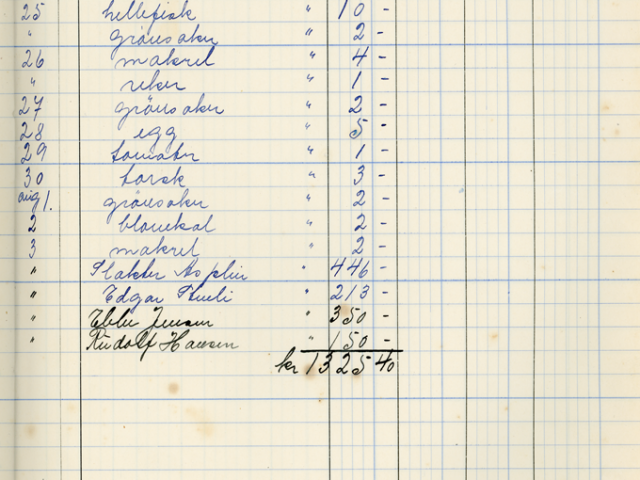 25 hellefisk " 10 -
" grönsaker " 2 -
26 makrel " 4 -
" reker " 1 -
27 grönsaker " 2 -
28 egg " 5 -
29 tomater " 1 -
30 torsk " 3 -
aug 1. grönsaker " 2 -
2 blomkal " 2 -
3 makrel " 2 -
" Slakter Asplin " 446 -
" Edgar " 213 -
" Ebbe Jensen " 350 -
" Rudolf Hansen " 150 -
kr 1325 40